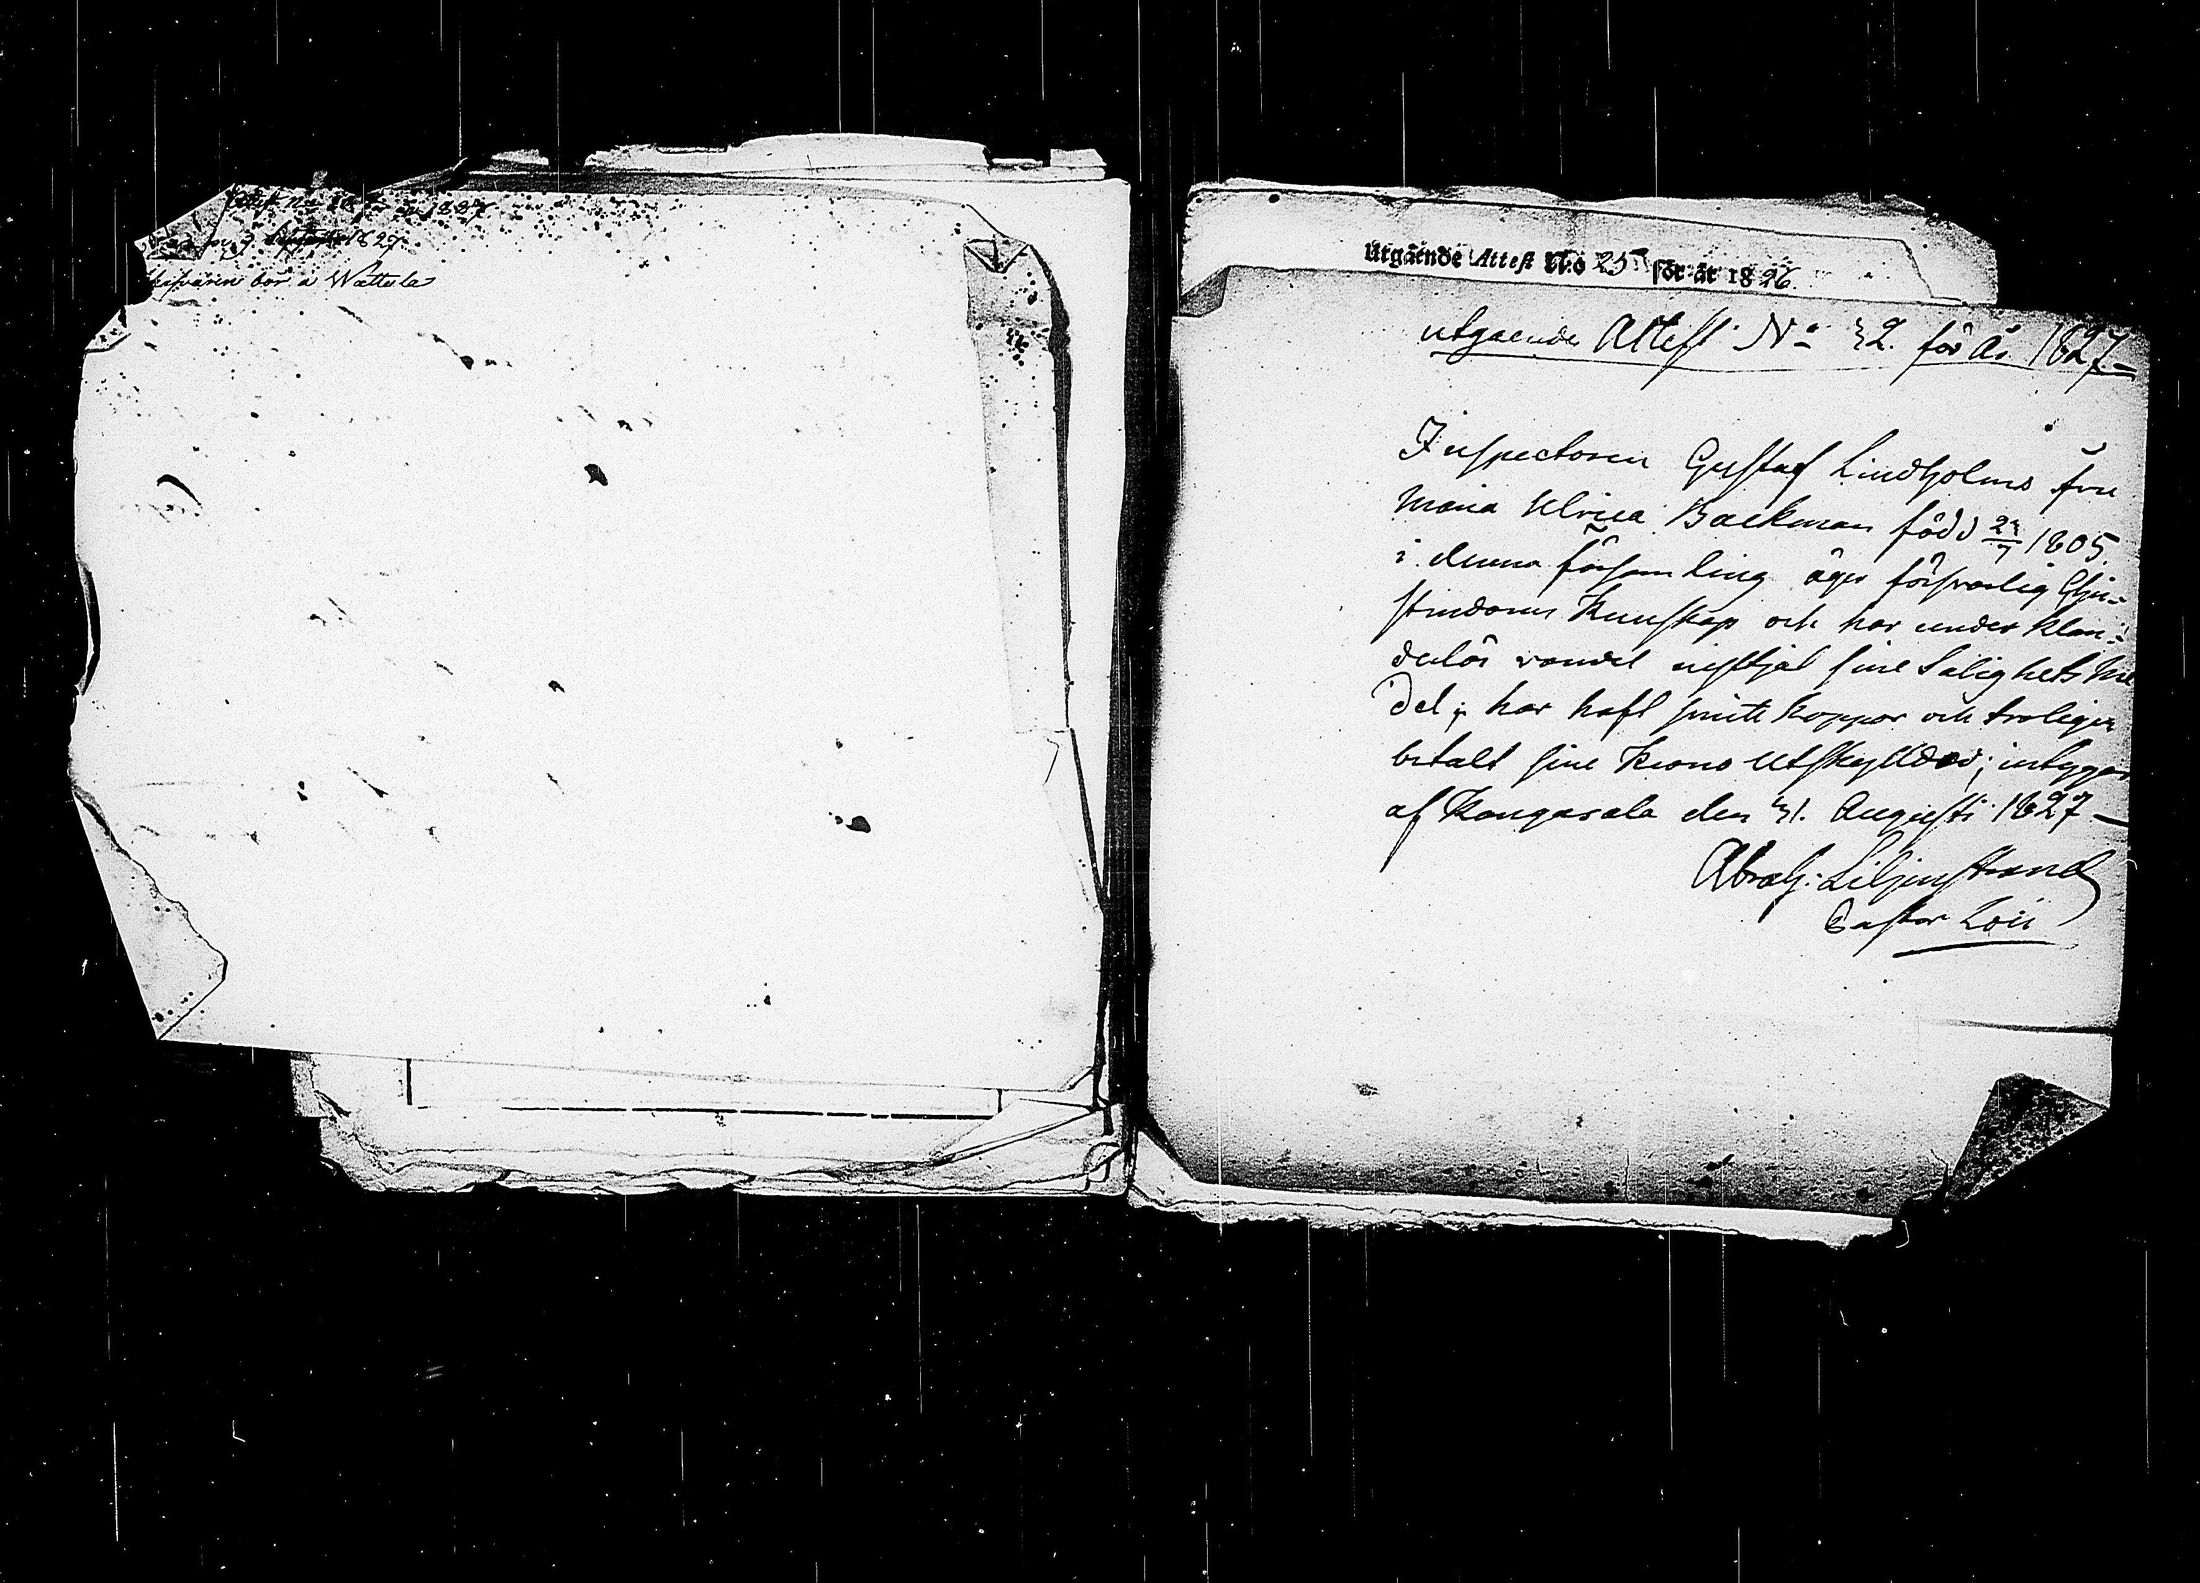 Attest No för år 1827
9 September 1827
bor å Wattula
Utgående Attest No 25 för år 1826.
utgående Attest No 32. för År 1827.
Inspectoren Gustaf Lindholms Fru
Maria Ulrica Backman född 1805.
i denna församling äger försvarlig Chri-
stendoms Kunskap och har under klan-
derlös vandel nyttjat sine Salighets Me
del; har haft smitt koppor och troligen
betalt sine Krono Utskylder; intygar
af Kangasala den 31. Augusti 1827
Abrah: Liljenstrand
Pastor Loci